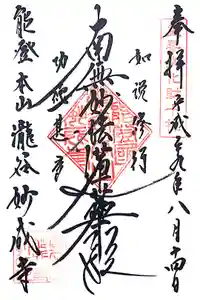 奉拝 平成二九年八月十四日
如説修行
南無妙法蓮華経
功徳甚多
能登本山瀧谷妙成寺